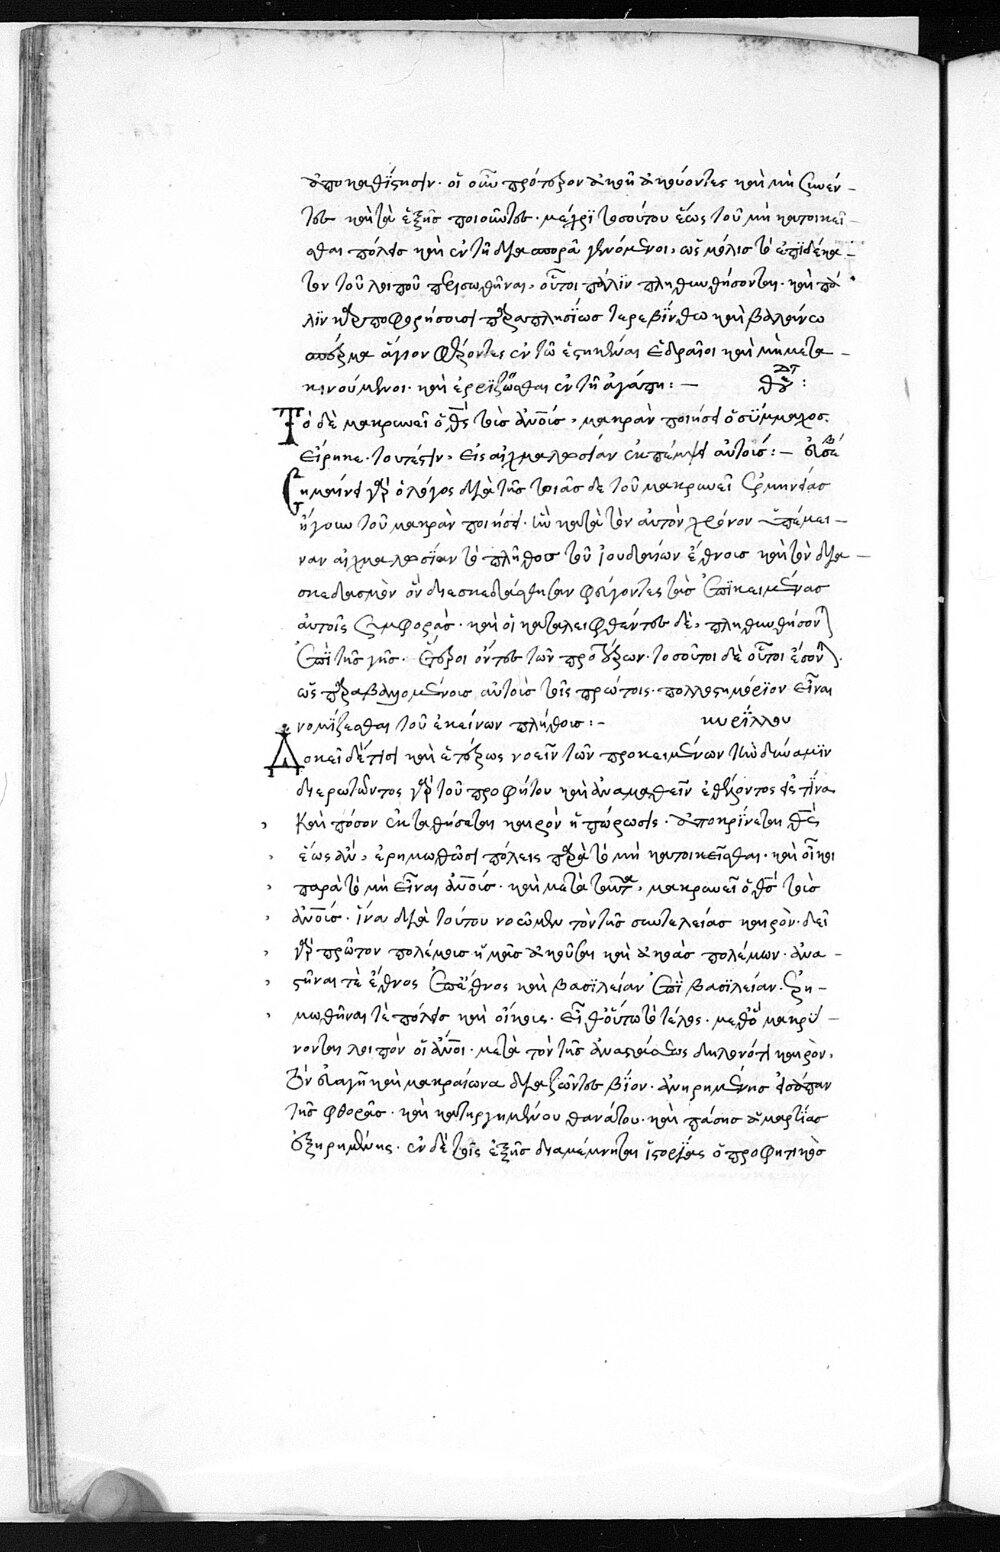 ἀποκαθίστησιν. οἱ οὖν πρότερον ἀκοῇ ἀκούοντες καὶ μὴ συνιέν-
τες καὶ τὰ ἑξῆς ποιοῦντες. μέχρι τοσούτου ἕως τοῦ μὴ κατοικεῖ
σθαι πόλεις καὶ ἐν τῇ διασπορᾷ γενόμενοι, ὡς μόλις τὸ ἐπιδέκα-
τον τοῦ λοιποῦ περισωθῆναι, οὗτοι πάλιν πληθυνθήσονται. καὶ πά
λιν καρποφορήσουσι παραπλησίως τερεβίνθω καὶ βαλάνω
σπέρμα ἅγιον φέροντες ἐν τῷ ἑστηκέναι ἑδραῖοι καὶ μὴ μετα-
κινούμενοι. καὶ ἐρριζῶσθαι ἐν τῇ ἀγάπῃ:-
Τὸ δὲ μακρυνεῖ ὁ θς τοὺς ἀνους, μακρὰν ποιήσει ὁ σύμμαχος
εἴρηκε. τουτέστιν, εἰς αἰχμαλωσίαν ἐκπέμψει αὐτούς:- εὐσε
Σημαίνει γὰρ ὁ λόγος διὰ τῆς τοιᾶσδε τοῦ μακρυνεῖ ἑρμηνείας
ἤγουν τοῦ μακρὰν ποιήσει. τὴν κατὰ τὸν αὐτὸν χρόνον ὑπέμει-
ναν αἰχμαλωσίαν τὸ πλῆθος τοῦ ἰουδαίων ἔθνους καὶ τὸν δια-
σκεδασμὸν ὃν διεσκεδάσθησαν φεύγοντες τὰς ἐπικειμένας
αὐτοῖς συμφοράς. καὶ οἱ καταλειφθέντες δὲ, πληθυνθήσον
ἐπὶ τῆς γῆς. ἕτεροι ὄντες τῶν προτέρων. τοσοῦτοι δὲ οὗτοι ἔσον.
ὡς παραβαλλομένους αὐτοὺς τοῖς πρώτοις. πολλοστημόριον εἶναι
νομίζεσθαι τοῦ ἐκείνων πλήθους:- κυρίλλου
Δοκεῖ δέ τισι καὶ ἑτέρως νοεῖν τῶν προκειμένων τὴν δύναμιν
διερωτῶντος γὰρ τοῦ προφήτου καὶ ἀναμαθεῖν ἐθέλοντος εἰς τίνα
καὶ πόσον ἐκταθήσεται καιρὸν ἡ πώρωσις. ἀποκρίνεται θς
ἕως ἂν, ἐρημωθῶσι πόλεις παρὰ τὸ μὴ κατοικεῖσθαι. καὶ οἶκοι
παρὰ τὸ μὴ εἶναι ἀνους. καὶ μετὰ ταῦτα, μακρυνεῖ ὁ θς τοὺς
ἀνους. ἵνα διὰ τούτου νοῶμεν τὸν τῆς συντελείας καιρὸν. δεῖ
γὰρ πρῶτον πολέμους ἡμᾶς ἀκοῦσαι καὶ ἀκοὰς πολέμων. ἀνα-
στῆναι τὲ ἔθνος ἐπ' ἔθνος καὶ βασιλείαν ἐπὶ βασιλείαν. ἐρη-
μωθῆναι τὲ πόλεις καὶ οἴκους. εἶθ' οὕτω τὸ τέλος. μεθ' ὃ μακρύ-
νονται λοιπὸν οἱ ἀνοι. μετὰ τὸν τῆς ἀναστάσεως δηλονότι καιρὸν,
τὸν εὐαγῆ καὶ μακραίωνα διαζῶντες βίον. ἀνηρημένης εἰσάπαν
τῆς φθορᾶς. καὶ κατηργημένου θανάτου. καὶ πάσης ἁμαρτίας
ἐξηρημένης. ἐν δὲ τοῖς ἑξῆς διαμέμνηται ἱστορίας ὁ προφητικὸς